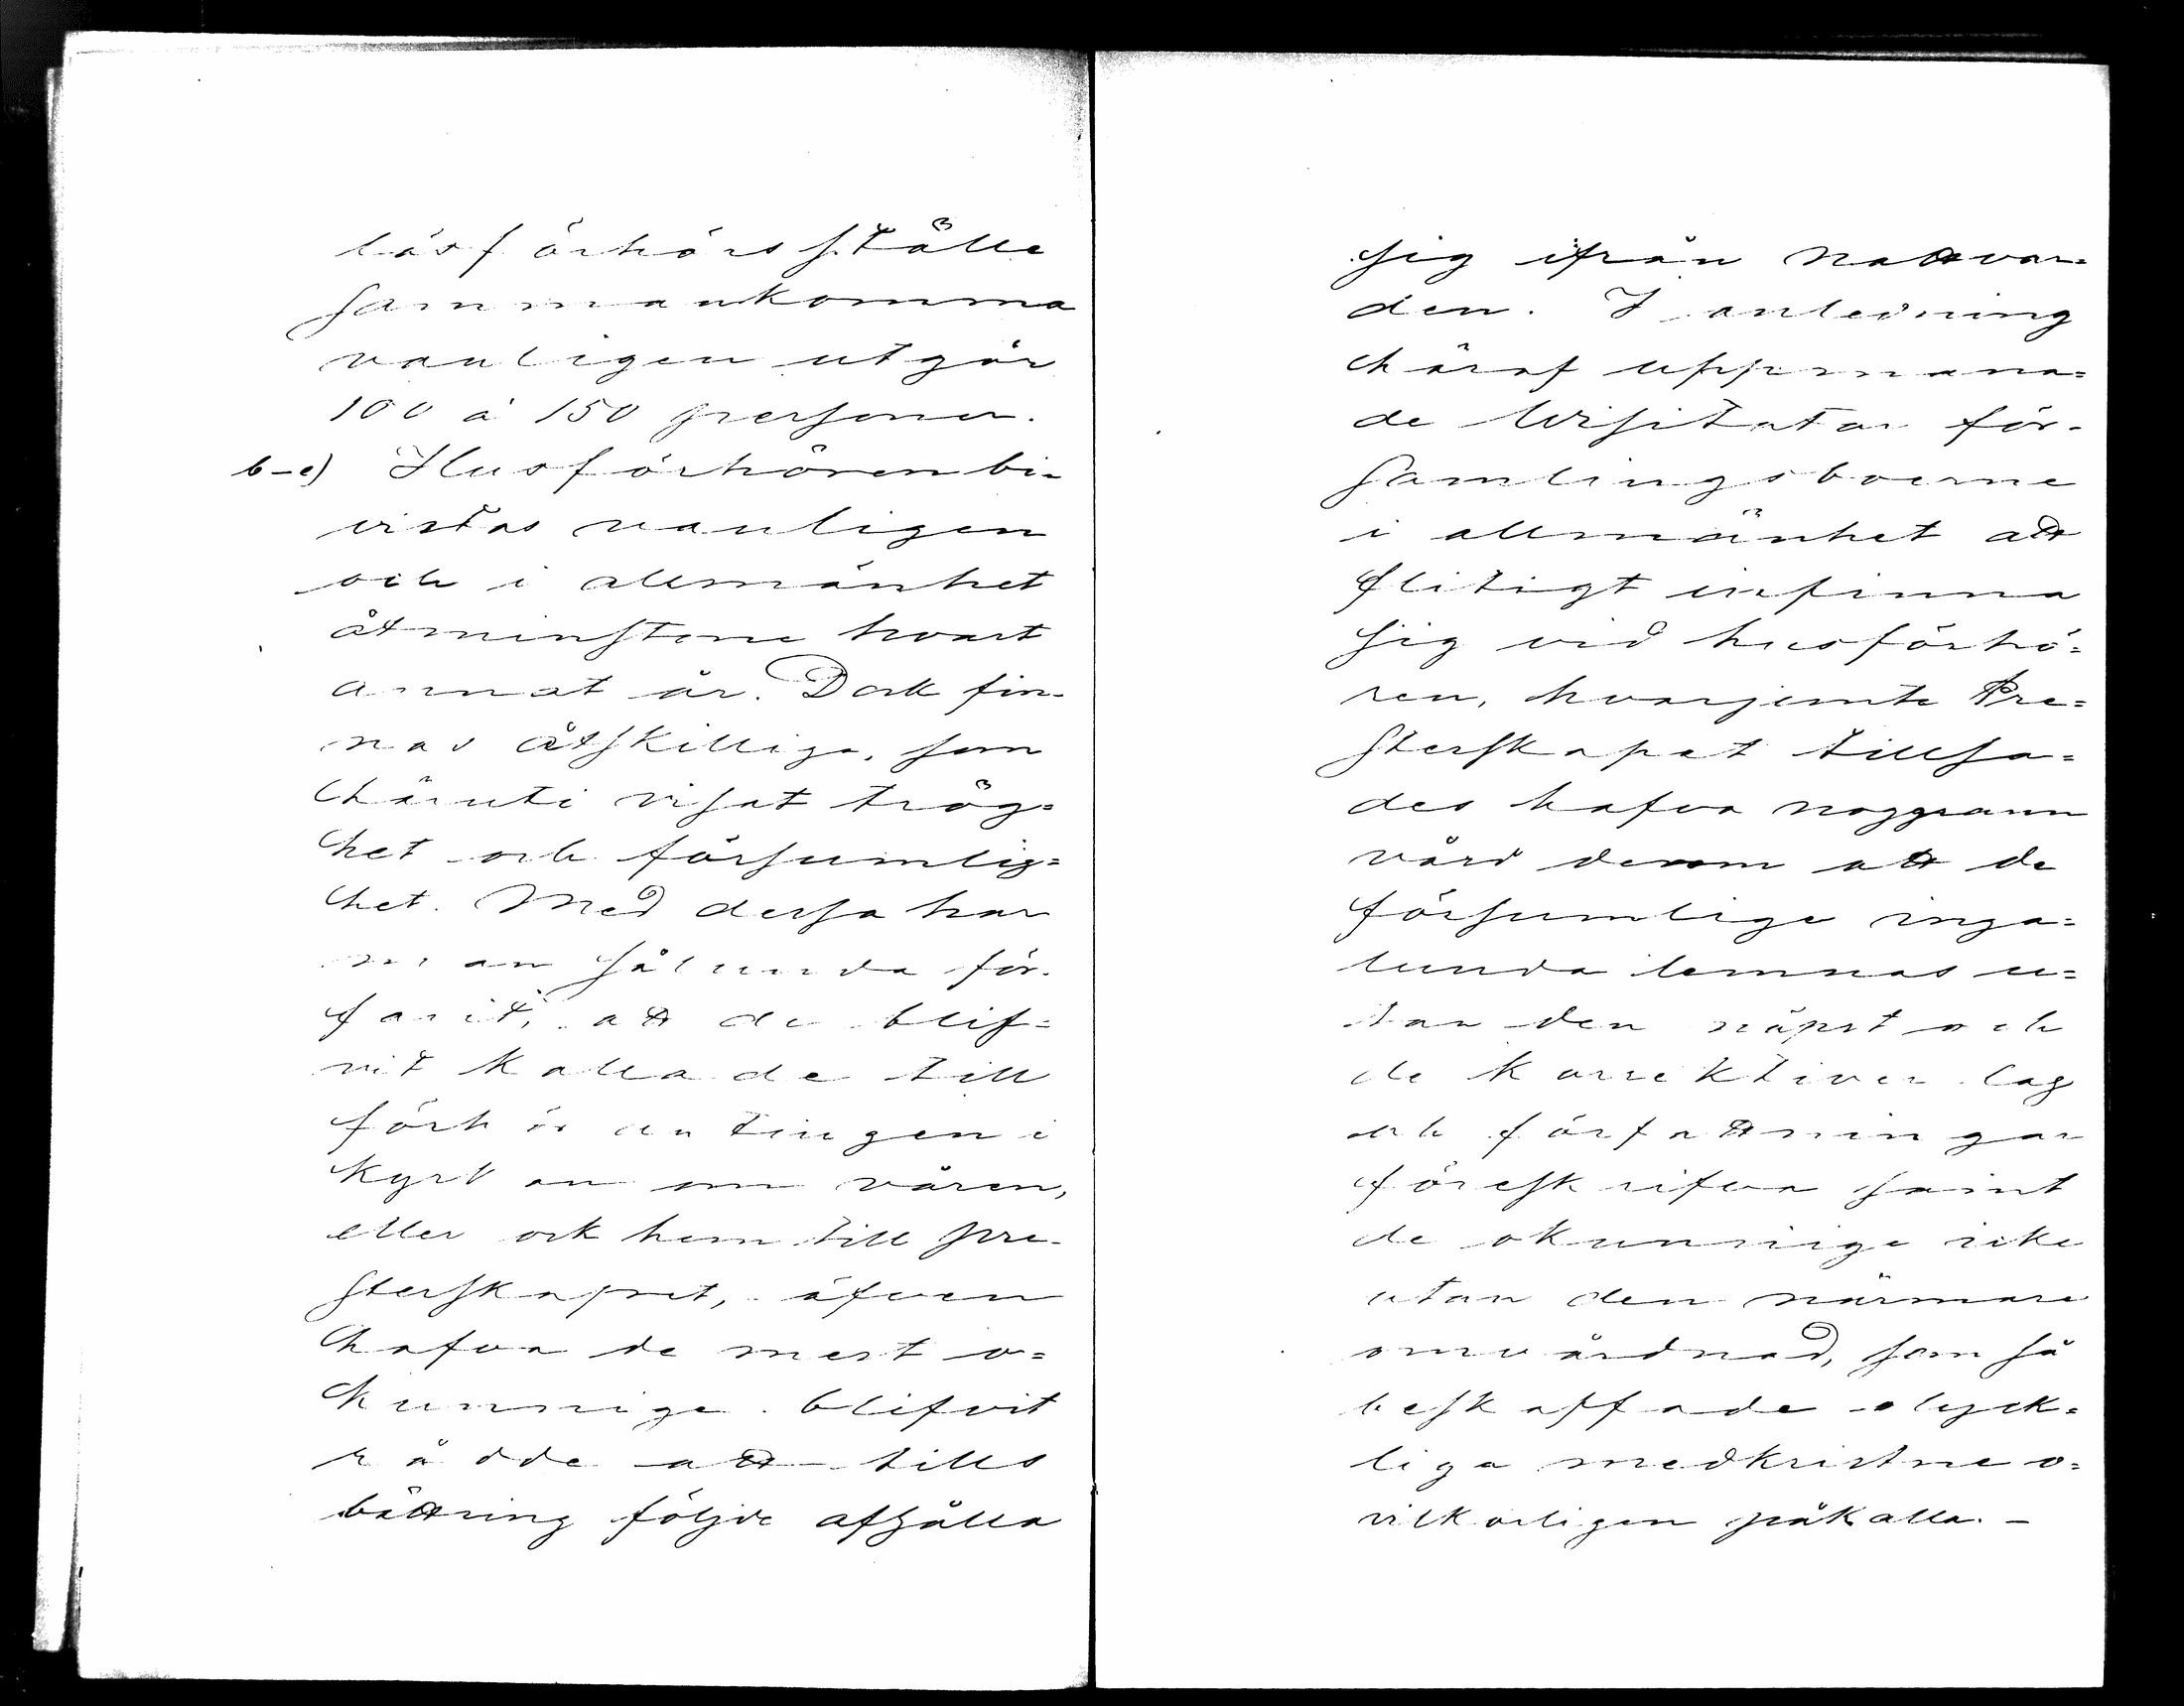 läsförhörsställe
sammankomma
vanligen utgör
100 à 150 personer.
b-e) Husförhören bi-
vistas vanligen
och i allmänhet
åtminstone hvart
annat år. Dock fin-
nas åtskilliga, som
häruti visat trög=
het och försumlig=
het. Med dessa har
man sålunda för-
farit, att de blif=
vit kallade till
förhör antingen i
kyrkan om våren,
eller ock hem till pre-
sterskapet, äfven
hafva de mest o=
kunnige blifvit
rådde att tills
bättring följde afhålla
sig ifrån nattvar=
den. I anledning
häraf uppmana=
de Visitator för-
samlingsboerne
i allmänhet att
flitigt infinna
sig vid husförhö=
ren, hvarjemte Pre=
sterskapet tillsa=
des hafva noggrann
vård derom att de
försumlige inga=
lunda lemnas u=
tan den näpst och
de korrektiver lag
och författningar
föreskrifva samt
de okunnige icke
utan den närmare
omvårdnad, som så
beskaffade olyck=
liga medkristne o=
vilkorligen påkalla. -